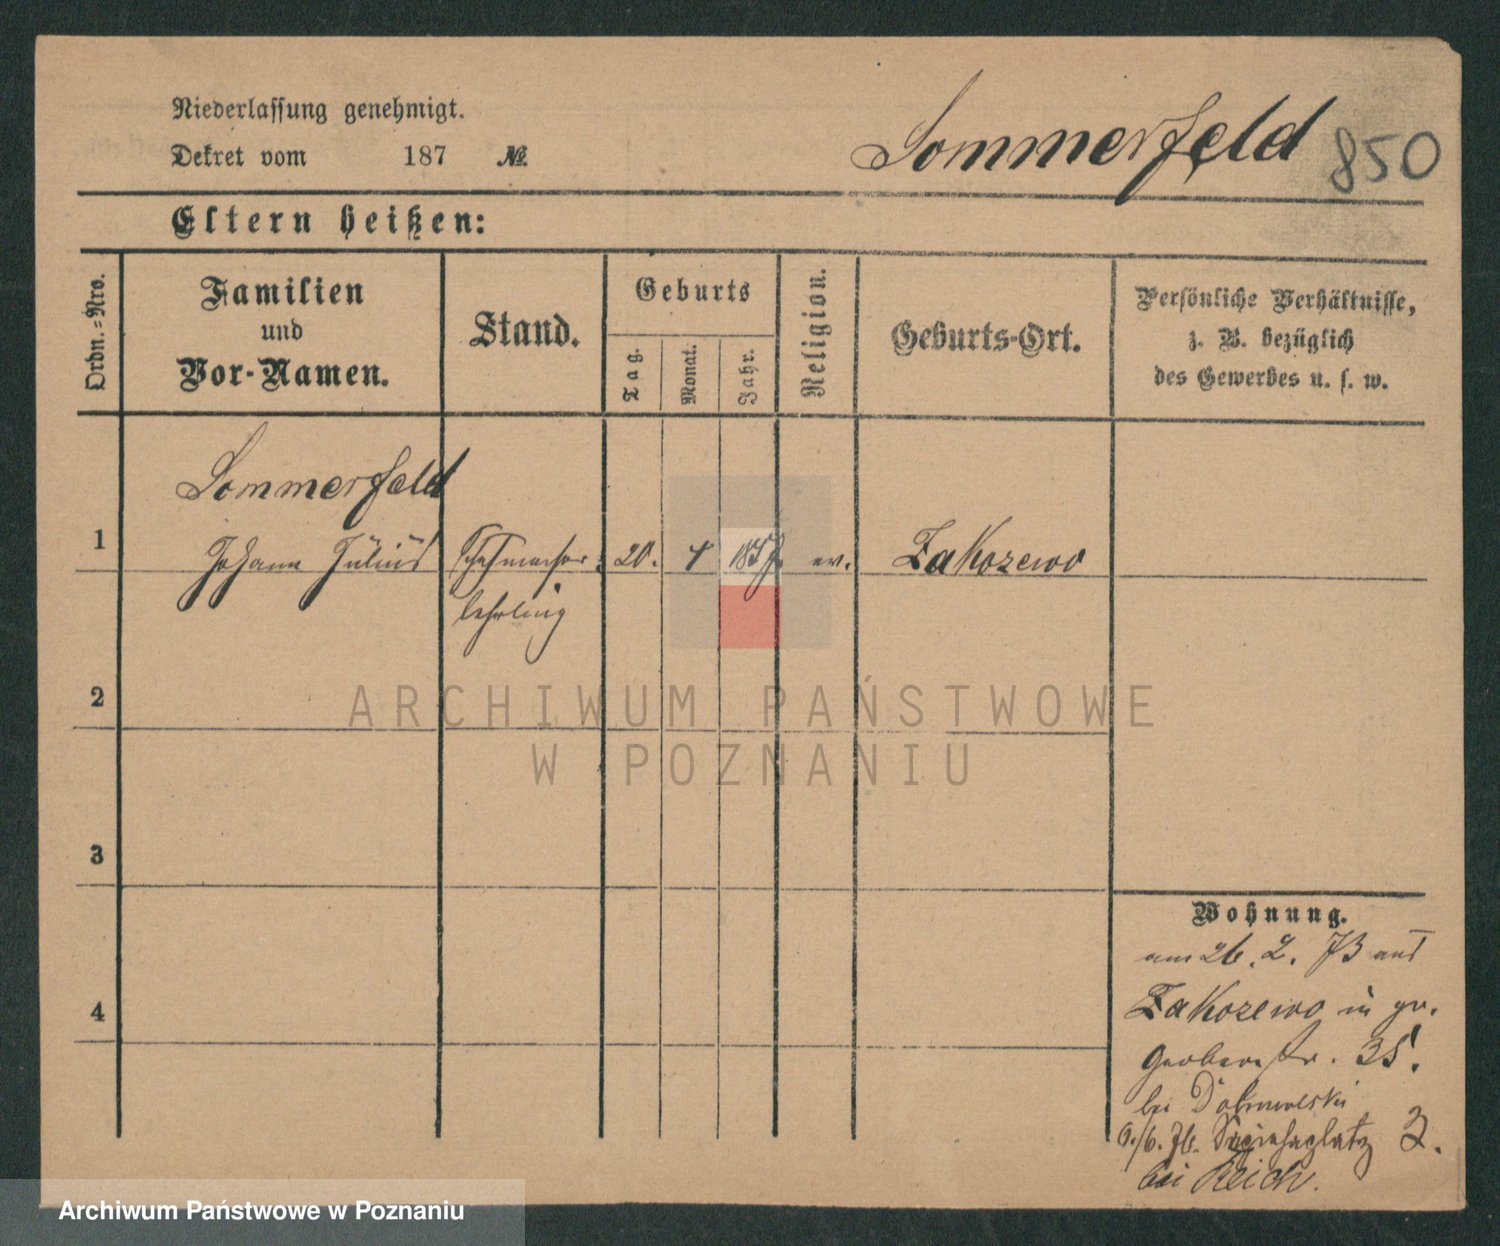 Niederlassung genehmigt.
Dekret vom 187 №
Sommerfeld 850
Eltern heißen:
Ordn.=Nro.
Familien
und
Vor-Namen.
Stand.
Geburts
Tag.
Monat.
Jahr.
Religion.
Geburts-Ort.
Persönliche Verhältnisse,
z. B. bezüglich
des Gewerbes u. s. w.
Sommerfeld
1 Johann Julius 20. 4 1857. ev. Zakozewo
lehrling
2
ARCHIWUM PAŃSTWOWE
W POZNANIU
3
4
Wohnung.
am 26. 2. 73 aus
Zakozewo in gr.
Gerberstr. 35.
bei
3.
bei Reich.
Archiwum Państwowe w Poznaniu